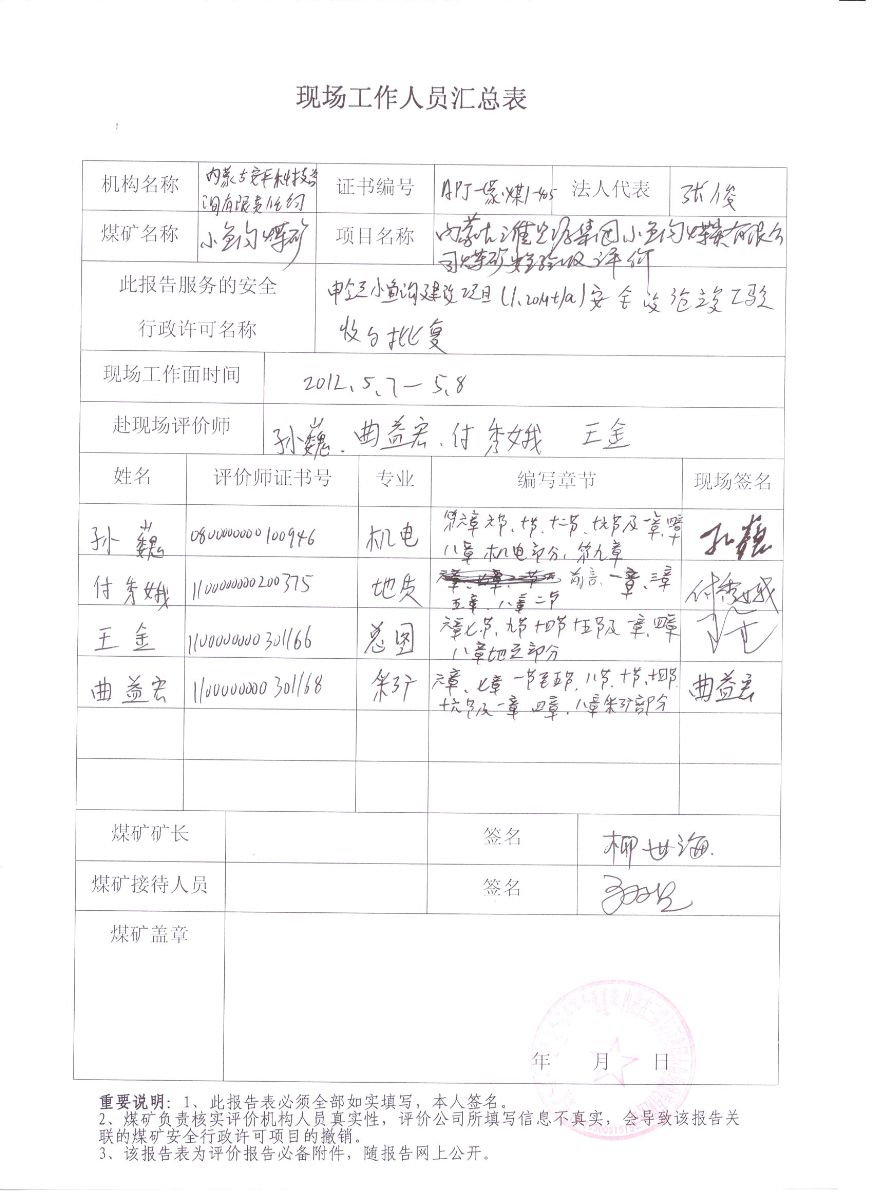 现场工作人员汇总表
机构名称 内蒙古安平科技咨 证书编号 APJ-蒙·煤1-405 法人代表 张俊
询有限责任公司
煤矿名称 小鱼沟煤矿 项目名称 内蒙古准兴源集团小鱼沟煤炭有限公
司煤矿安全验收评价
此报告服务的安全 小鱼沟建设项目(1.20Mt/a)安全设施竣工验
行政许可名称 收的批复
现场工作面时间 2012.5.7-5.8
赴现场评价师 孙巍、曲益宏、付秀娥 王金
姓名 评价师证书号 专业 编写章节 现场签名
孙巍 0800000000100946 机电 八章机电部分,第九章 孙巍
付秀娥 1100000000200375 地质 前言、一章、三章 付秀娥
五章、八章二节
王金 1100000000301166 总图 六章七节、九节十四节十五节及一章、四章 王金
八章地面部分
曲益宏 1100000000301168 采矿 六章、七章一节至五节、八节、十节、十四节 曲益宏
十六节及一章四章、八章采矿部分
煤矿矿长 签名 柳世海
煤矿接待人员 签名
煤矿盖章
年 月 日
重要说明:1、此报告表必须全部如实填写,本人签名。
2、煤矿负责核实评价机构人员真实性,评价公司所填写信息不真实,会导致该报告关
联的煤矿安全行政许可项目的撤销。
3、该报告表为评价报告必备附件,随报告网上公开。